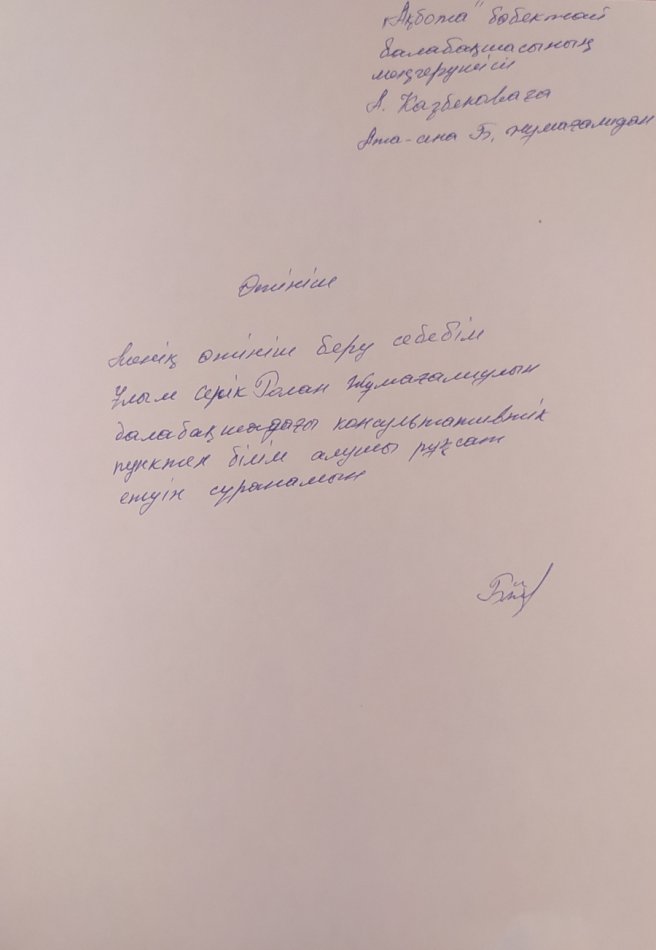 "Ақбота" бөбекжай
балабақшасының
меңгерушісі
А. Казбековаға
Ата-ана Б. Жумағалидан
Өтініш
Менің өтініш беру себебім
Ұлым Серік Ролан Жұмағалиұлын
балабақшадағы консультативтік
пунктен білім алушы рұқсат
етуін суранамын